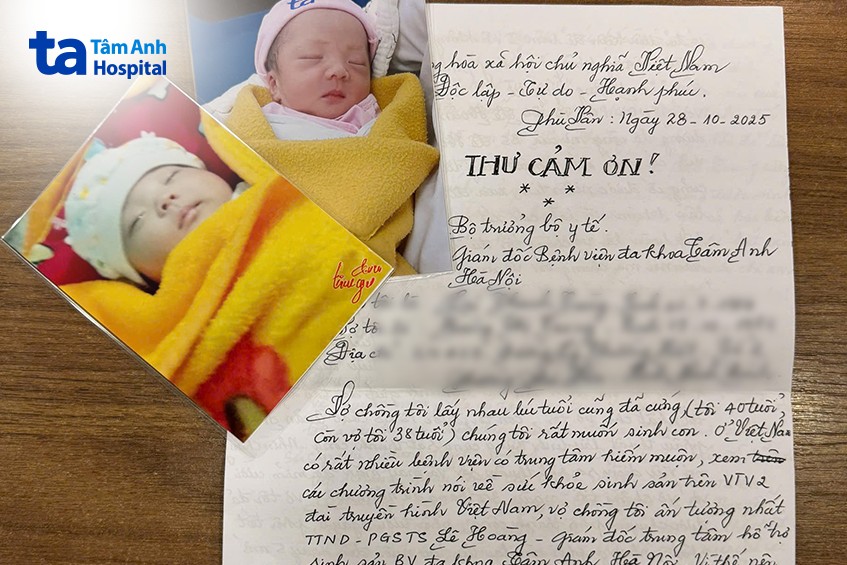 ta Tâm Anh
Hospital
ta
g hòa xã hội chủ nghĩa Việt Nam
Độc lập - Tự do - Hạnh phúc.
Phú Tân : Ngày 28-10-2025
THƯ CẢM ƠN!
* * *
Bộ trưởng bộ y tế.
Giám đốc Bệnh viện đa khoa Tâm Anh
Hà Nội
ợ tô
Địa c
Vợ chồng tôi lấy nhau lúc tuổi cũng đã cứng (tôi 40 tuổi,
còn vợ tôi 38 tuổi) chúng tôi rất muốn sinh con. Ở Việt Na
có rất nhiều bệnh viện có trung tâm hiếm muộn, xem trên
các chương trình nói về sức khỏe sinh sản trên VTV2
đài truyền hình Việt Nam, vợ chồng tôi ấn tượng nhất
TTND - PGSTS Lê Hoàng - Giám đốc trung tâm hỗ trợ
sinh sản BV đa khoa Tâm Anh Hà Nội. Vì thế nên